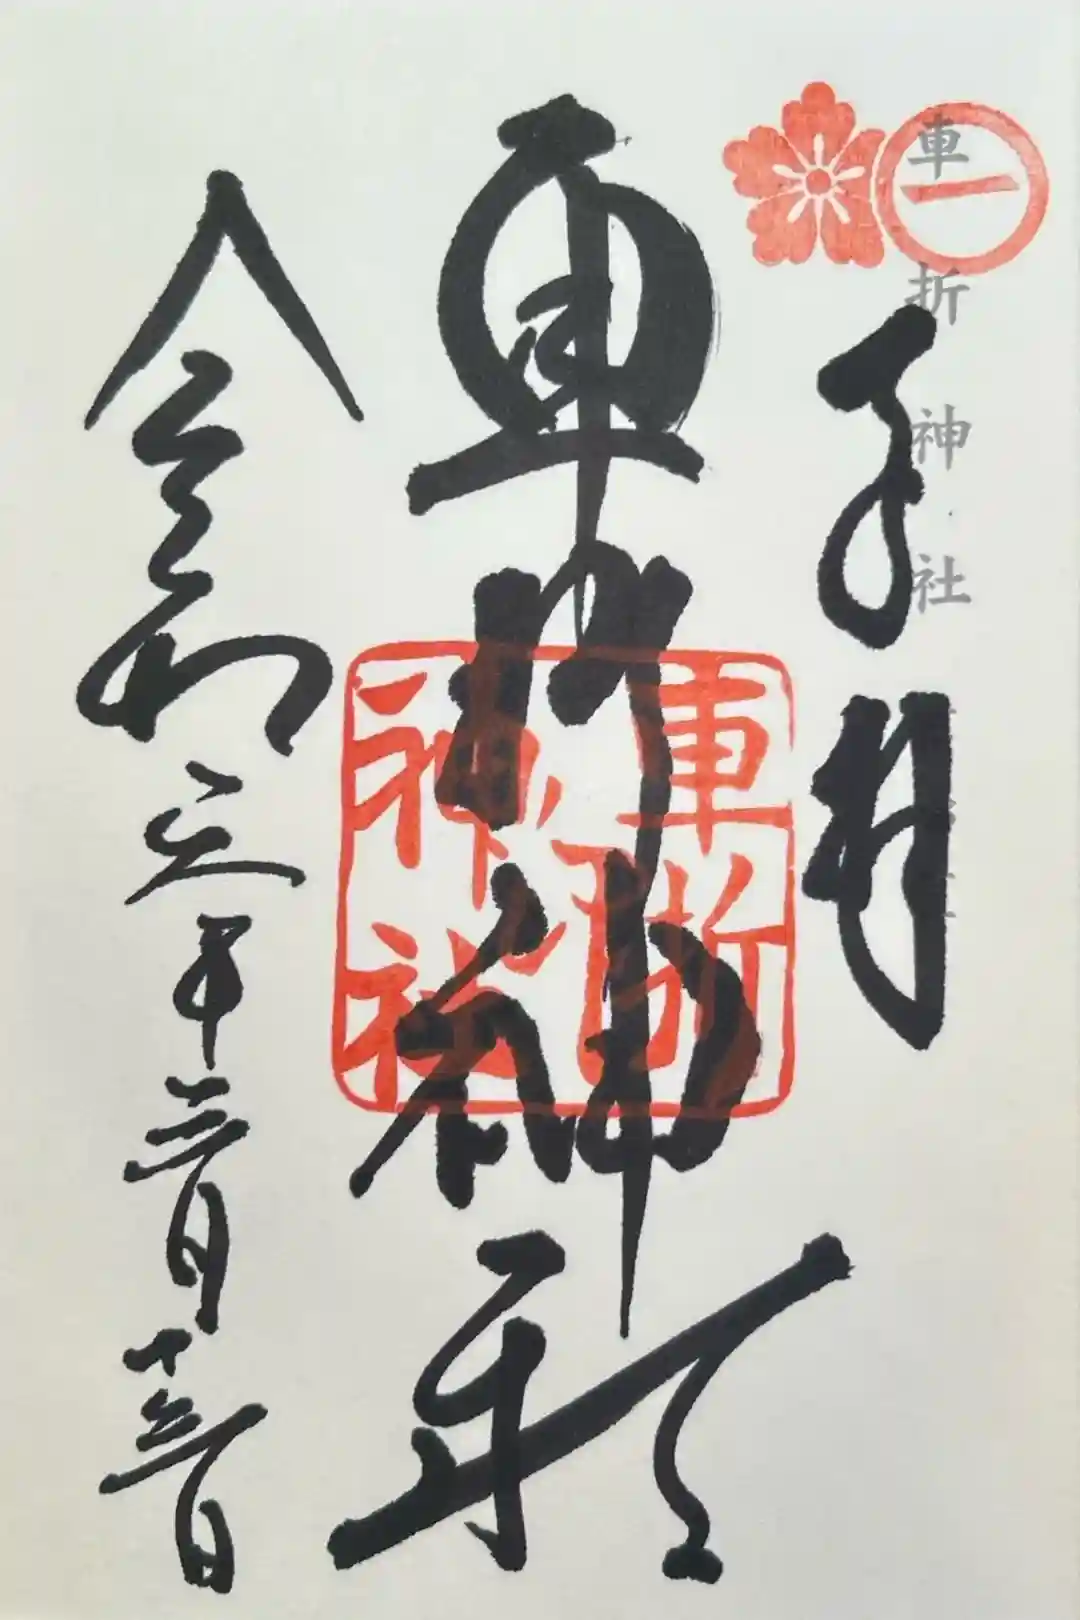 車折神社
奉拝
車折神社
車折神社
令和五年三月十五日